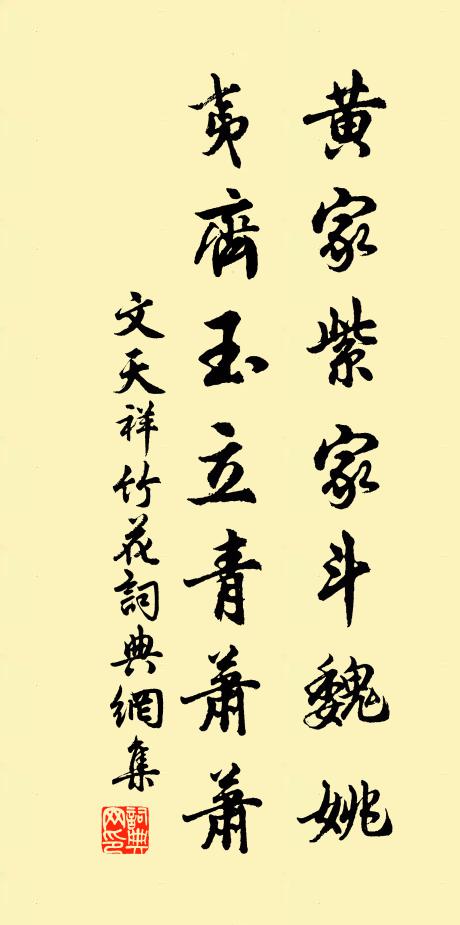 黄家紫家斗魏姚
夷齊玉立青蕭蕭
文天祥竹花詞典網集
詞典网印